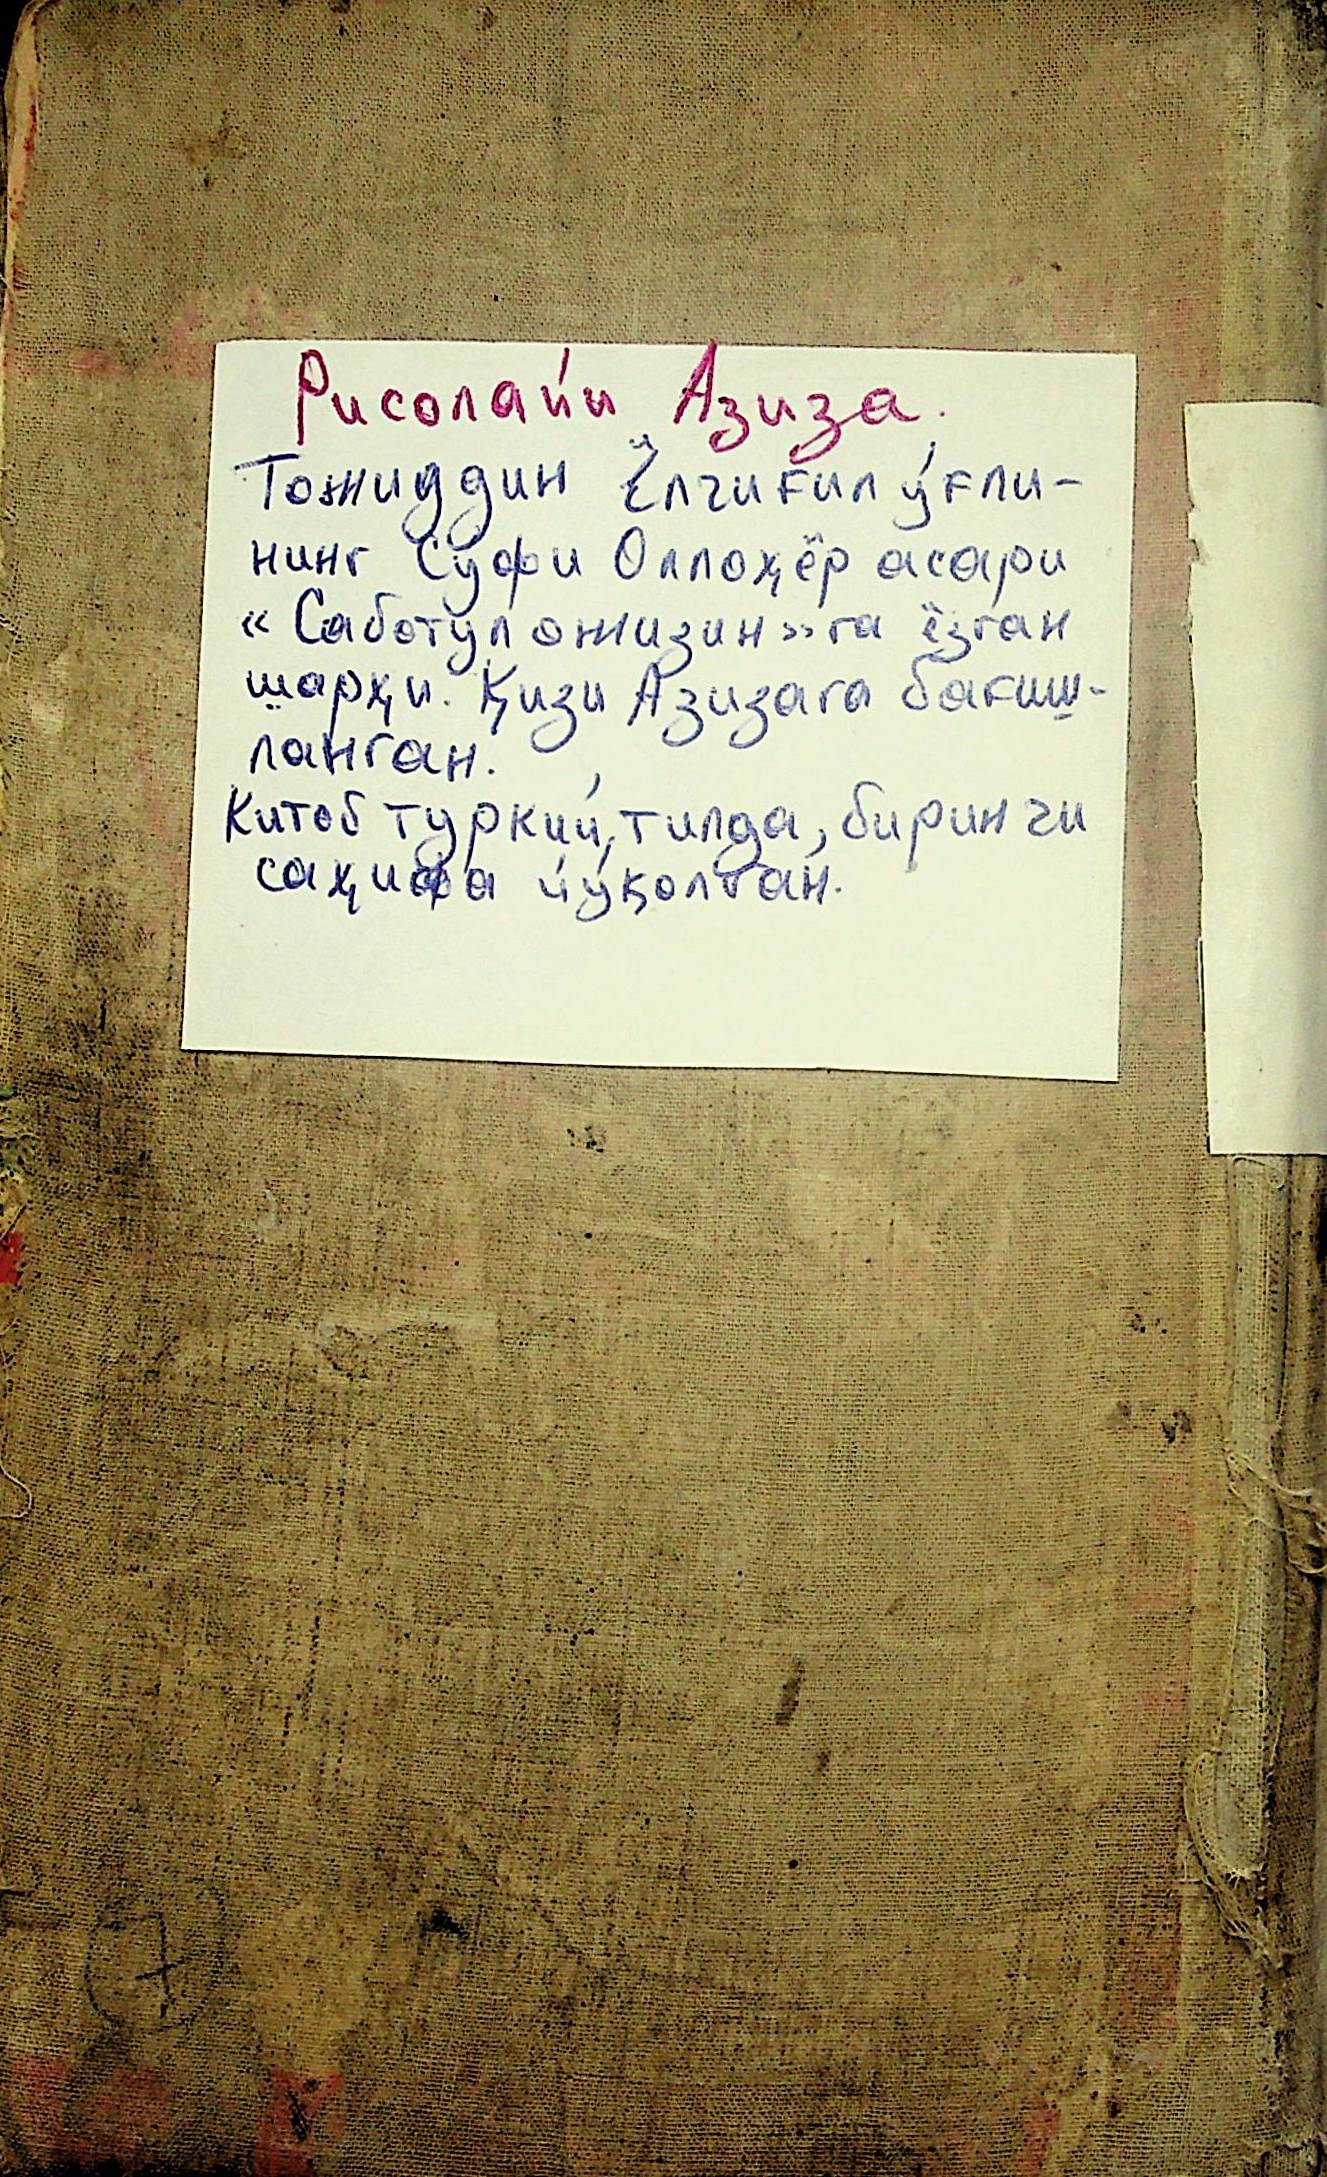 Рисолайи Азиза.
Тожиддин Ёлчиғил ўғли-
нинг Суфи Оллоҳёр асари
« Саботул ожизин» га ёзган
шарҳи. Қизи Азизага бағиш-
ланган.
Китоб туркий тилда, биринчи
саҳифа йўқолган.